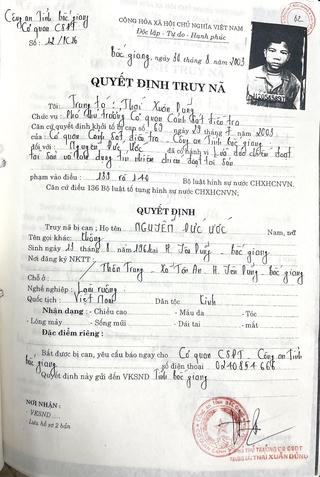 Công an Tỉnh Bắc giang
Cơ quan CSĐT
Số : 12 /
CỘNG HÒA XÃ HỘI CHỦ NGHĨA VIỆT NAM
Độc lập - Tự do - Hạnh phúc
62
Bắc giang, ngày 30 tháng 8 năm 2003
QUYẾT ĐỊNH TRUY NÃ
Tôi: Trung tá : Thái Xuân Dũng
Chức vụ : Phó thủ trưởng Cơ quan Cảnh sát điều tra
Căn cứ quyết định khởi tố bị can số 69 ngày 23 tháng 7 năm 2003
Cơ quan Cảnh sát điều tra - Công an Tỉnh Bắc giang
đối với : Nguyễn Đức Ước đã có hành vi Lừa đảo chiếm đoạt
tài sản và lạm dụng tín nhiệm chiếm đoạt tài sản
phạm vào điều : 139 và 140 Bộ luật hình sự nước CHXHCNVN.
Căn cứ điều 136 Bộ luật tố tụng hình sự nước CHXHCNVN;
QUYẾT ĐỊNH
Truy nã bị can ; Họ tên NGUYỄN ĐỨC ƯỚC Nam, nữ
Tên gọi khác:
Sinh ngày 19 tháng 8 năm tại H. Yên Dũng - Bắc giang
Nơi đăng ký NKTT :
Chỗ ở : Xã Tân An - H. Yên Dũng - Bắc giang
Nghề nghiệp : Làm ruộng
Quốc tịch : Việt Nam Dân tộc Kinh
Nhận dạng : - Chiều cao - Màu da - Tóc
- Lông mày - Sống mũi - Dái tai - mắt
Đặc điểm riêng :
Bắt được bị can, yêu cầu báo ngay cho Cơ quan CSĐT - Công an Tỉnh
Bắc giang số điện thoại 0240854666
Quyết định này gửi đến VKSND Tỉnh Bắc giang
NƠI NHẬN :
- VKSND
- Lưu hồ sơ 2 bản
PHÓ THỦ TRƯỞNG CQ CSĐT
TRUNG TÁ: THÁI XUÂN DŨNG